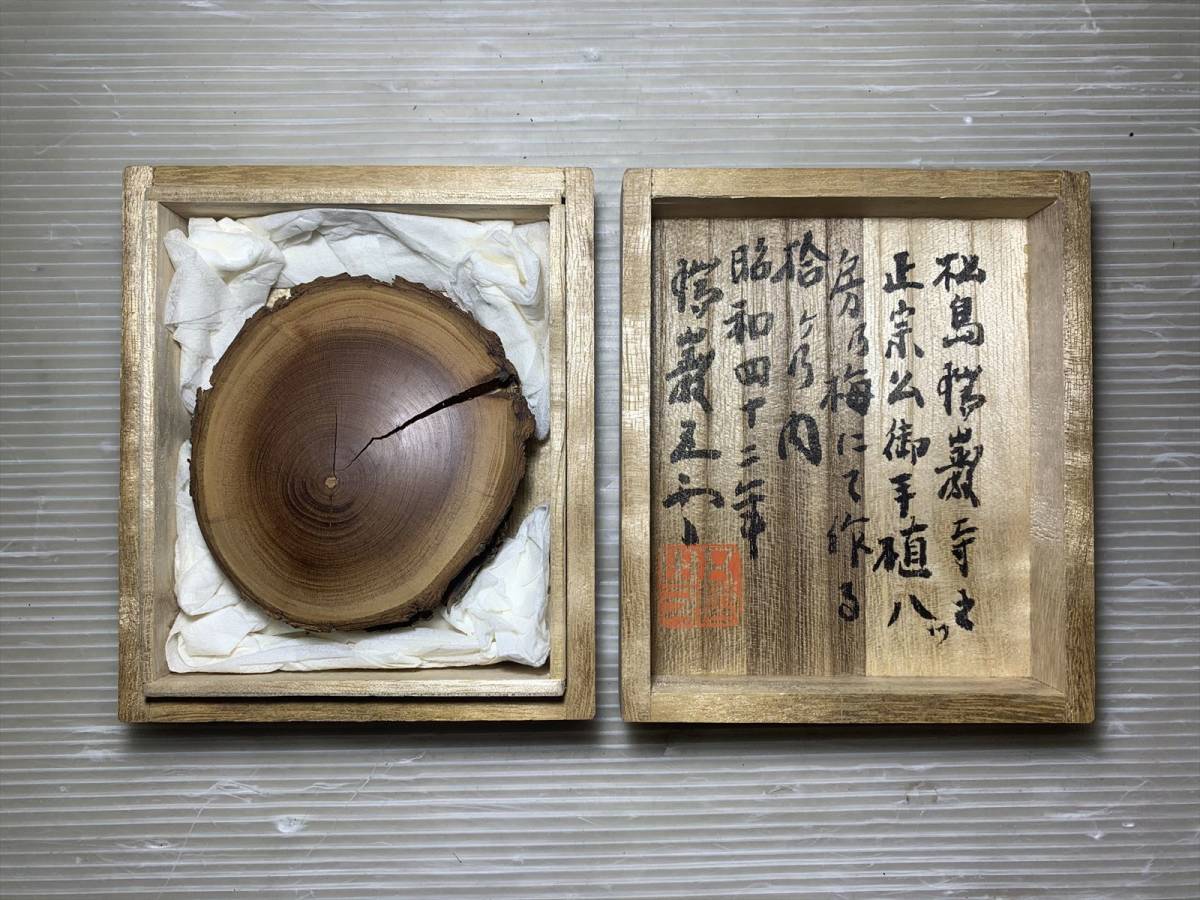 松島瑞巌寺ニ
正宗公御手植八ッ
房乃梅にて作る
拾ヶ乃内
昭和四十二年
瑞巌五雲